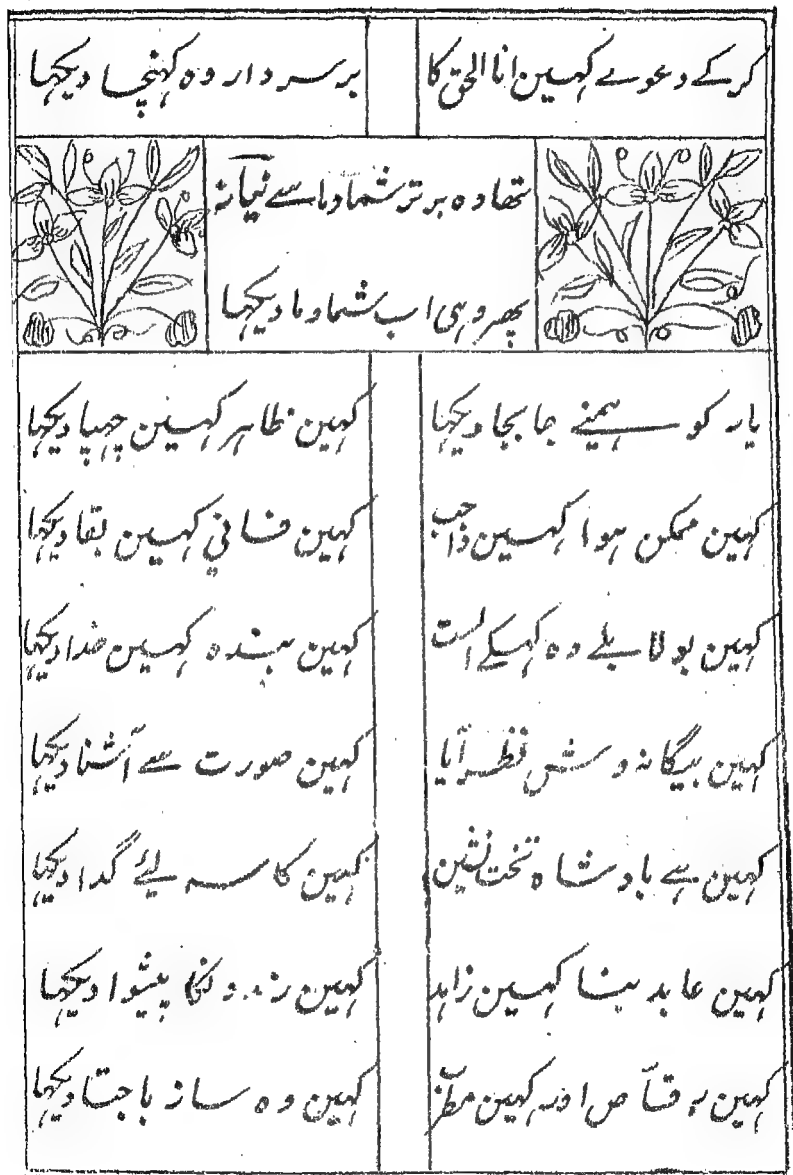 کرکے دعوے کہین اناالحق کا
برسردار وہ کہنچا دیکہا
تھا وہ برتر شما وما سے نیاز
پھر وہی اب شما وما دیکہا
یار کو ہمنے جا بجا دیکہا
کہین ظاہر کہین چہپا دیکہا
کہین ممکن ہوا کہین واجب
کہین فانی کہین بقا دیکہا
کہین بولا بلے وہ کہکے الست
کہین بندہ کہین خدا دیکہا
کہین بیگانہ وش نظر آیا
کہین صورت سے آشنا دیکہا
کہین ہے بادشاہ تخت نشین
کہین کاسہ لئے گدا دیکہا
کہین عابد بنا کہین زاہد
کہین رندونکا پیشوا دیکہا
کہین رقاص اور کہین مطرب
کہین وہ ساز باجتا دیکہا